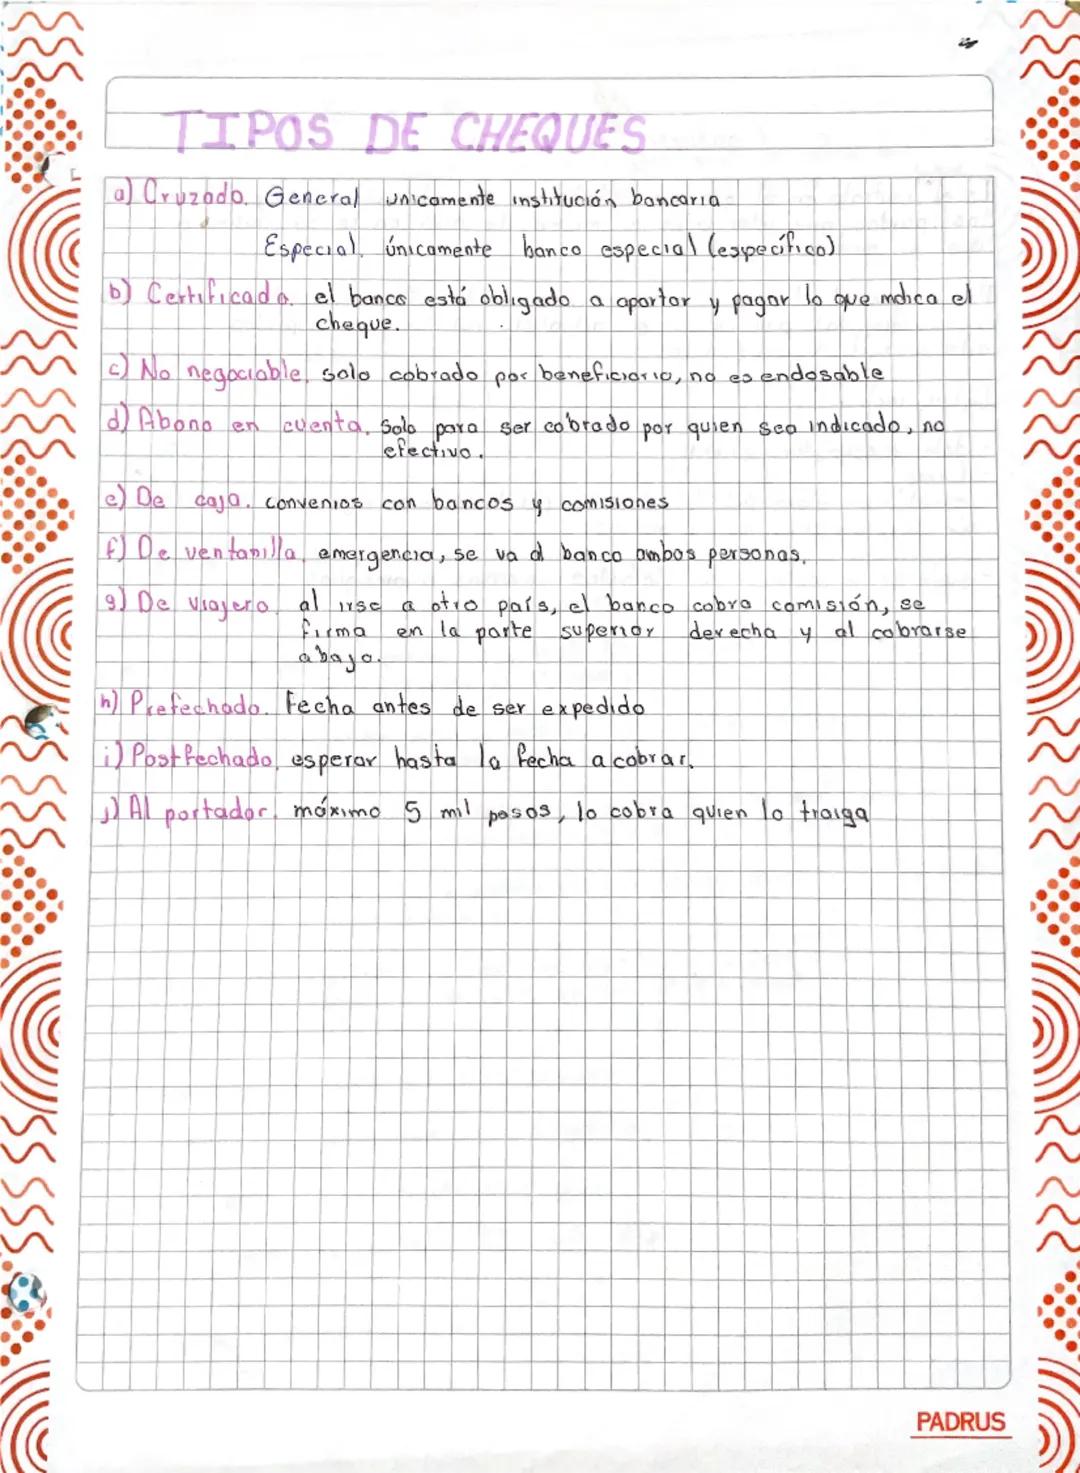 TIPOS DE CHEQUES
a) Cruzado. General unicamente institución bancaria
Especial. únicamente banco especial (específico)
b) Certificado. el banco está obligado a aportar y pagar lo que indica el
cheque.
c) No negociable. solo cobrado por beneficiario, no es endosable
d) Abono en cuenta. Solo para ser cobrado por quien sea indicado, no
efectivo.
e) De caja. convenios con bancos y comisiones
f) De ventanilla. emergencia, se va al banco ambos personas.
g) De viajero. al irse a otro país, el banco cobra comisión, se
firma en la parte superior derecha y al cobrarse
abajo.
h) Prefechado. Fecha antes de ser expedido
i) Postfechado. esperar hasta la fecha a cobrar.
j) Al portador. máximo 5 mil pesos, lo cobra quien lo traiga
PADRUS